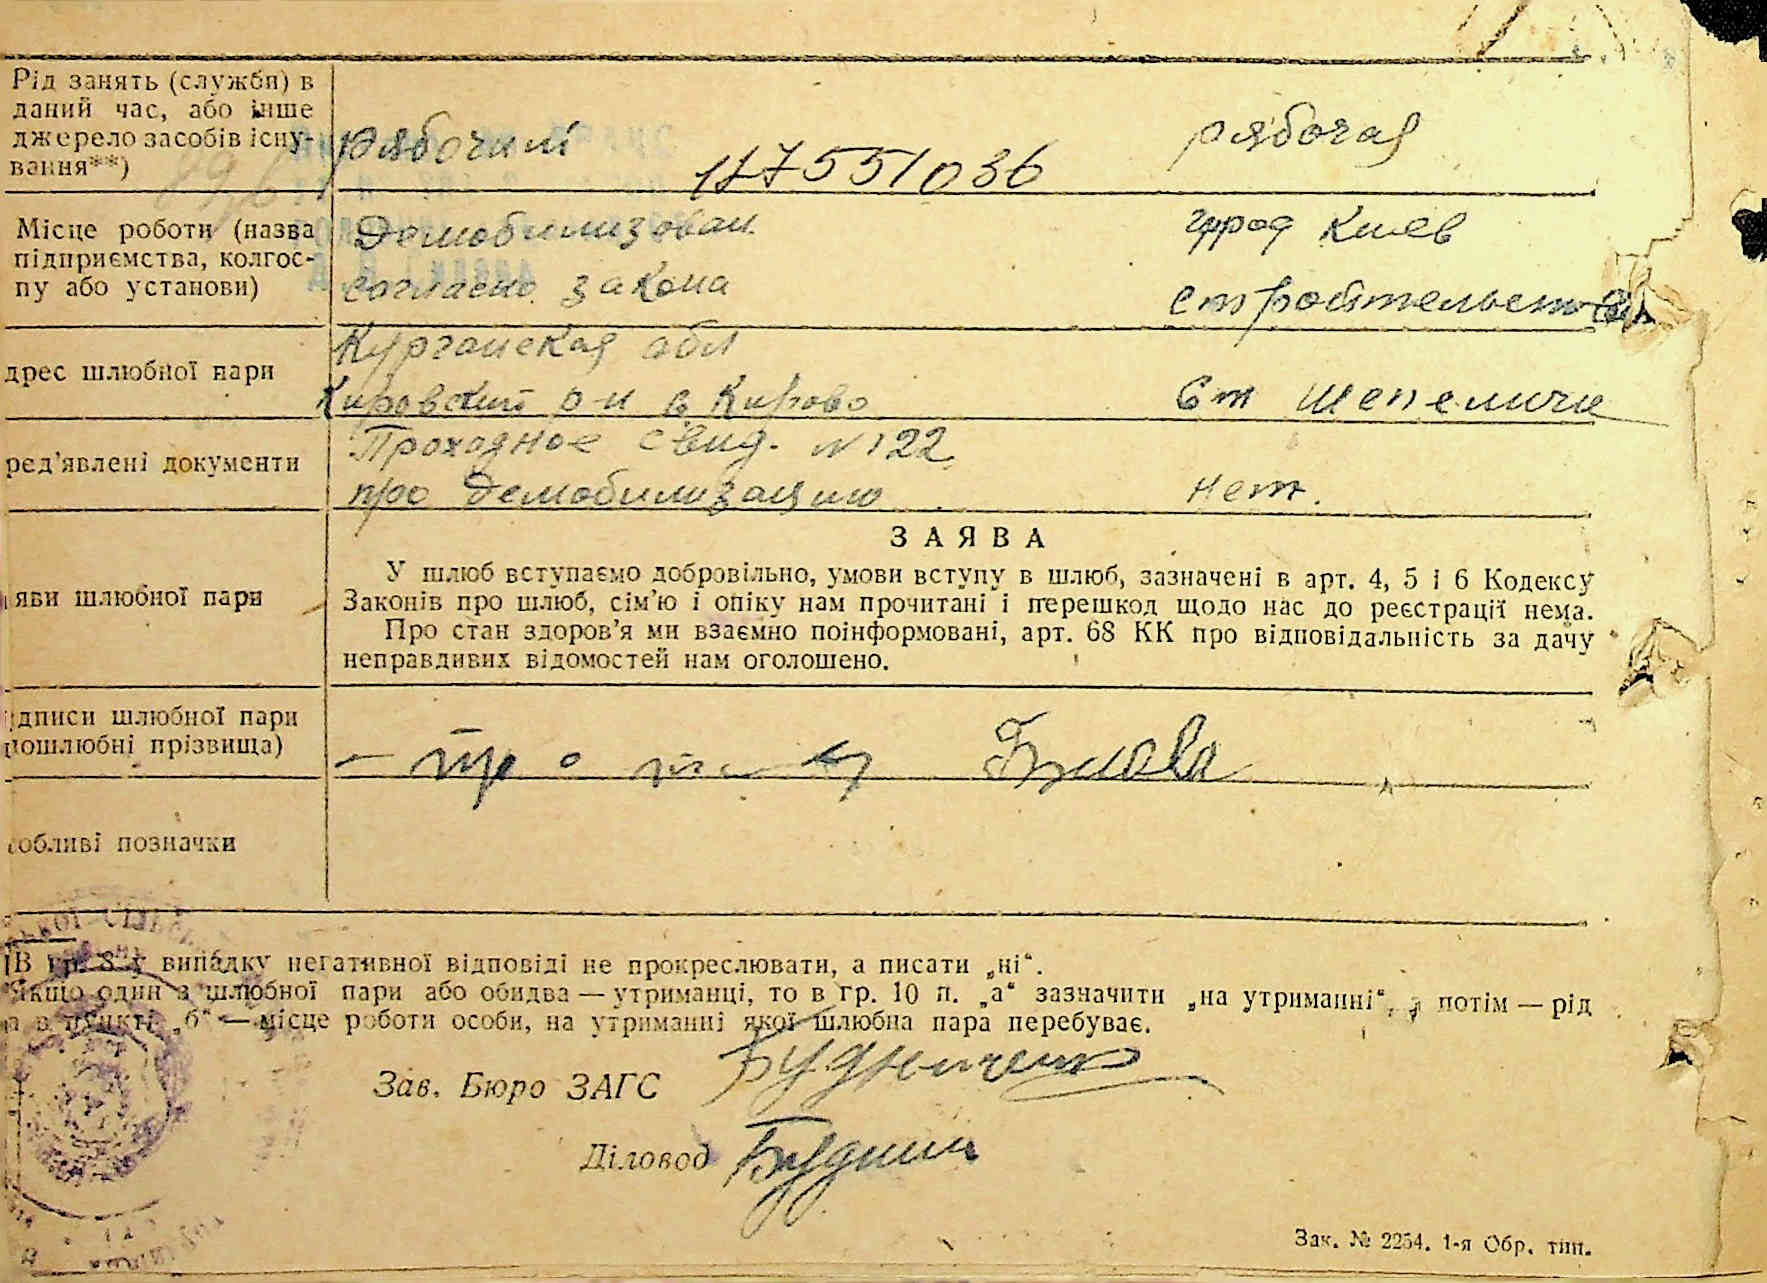 Рід занять (служби) в
даний час, або інше
джерело засобів існу-
вання**)
рабочий
117551036
рабочая
Місце роботи (назва
підприємства, колгос-
пу або установи)
Демобилизован
согласно закона
город Киев
строительство
дрес шлюбної пари
Курганская обл
Кировский р-н с. Кирово
Ст Шепеличи
ред’явлені документи
Проходное свид. №122
про демобилизацию
нет.
яви шлюбної пари
ЗАЯВА
У шлюб вступаємо добровільно, умови вступу в шлюб, зазначені в арт. 4, 5 і 6 Кодексу
Законів про шлюб, сім’ю і опіку нам прочитані і перешкод щодо нас до реєстрації нема.
Про стан здоров’я ми взаємно поінформовані, арт. 68 КК про відповідальність за дачу
неправдивих відомостей нам оголошено.
ідписи шлюбної пари
дошлюбні прізвища)
собливі позначки
В гр. 8 у випадку негативної відповіді не прокреслювати, а писати „ні“.
Якщо один з шлюбної пари або обидва — утриманці, то в гр. 10 п. „а“ зазначити „на утриманні“, а потім — рід
а в пункті „б“ — місце роботи особи, на утриманні якої шлюбна пара перебуває.
Зав. Бюро ЗАГС
Діловод
Зак. № 2254. 1-я Обр. тип.